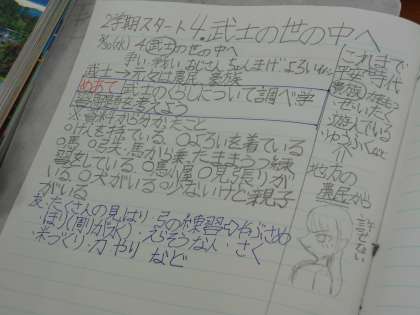 2学期スタート 4.武士の世の中へ
4 武士の世の中へ
争い・戦い おじさん ちょんまげ よろい
武士→元々は農民 豪族
めあて 武士のくらしについて調べ学
習問題を考えよう
※資料から分かったこと
○けんを持っている ○よろいを着ている
○馬 ○弓矢 馬から乗ったままうつ練
習をしている ○馬小屋 ○見張りが
いる ○犬がいる ○少ないけど親子
がいる
友・たくさんの見はり・弓の練習→やぶさめ
・ほり(前が水)・えらそうな人・さく
・米づくり・刀 やり など
これまで
平安時代
ぜいたく
遊んでいる
地方の
農民から
許せない